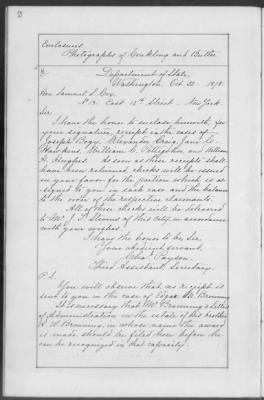 2
Enclosures
Photographs of Conkling and Butler
Department of State,
Washington, Oct. 22 1878.
Hon. Samuel S. Cox,
No 13. East 12th Street New York.
Sir:
I have the honor to enclose herewith, for
your signature, receipts in the cases of
Joseph Bogy, Alexander Craig, Jane C.
Hawkins, William H. and William
H. Hughes. As soon as these receipts shall
have been returned, checks will be issued
in your favor for the portion which is as-
signed to you in each case and the balance
to the order of the respective claimants.
All of these checks will be delivered
to Mr. J. F. of this City, in accordance
with your wishes.
I have the honor to be, Sir,
Your obedient servant,
Chas. Payson.
Third Assistant Secretary.
P.S.
You will observe that no receipt is
sent to you in the case of Edgar M. Browning
It is necessary that Mr Browning's Letters
of Administration in the estate of his brother
W. Browning, in whose name the award
is made should be filed here before he
can be recognized in that capacity.